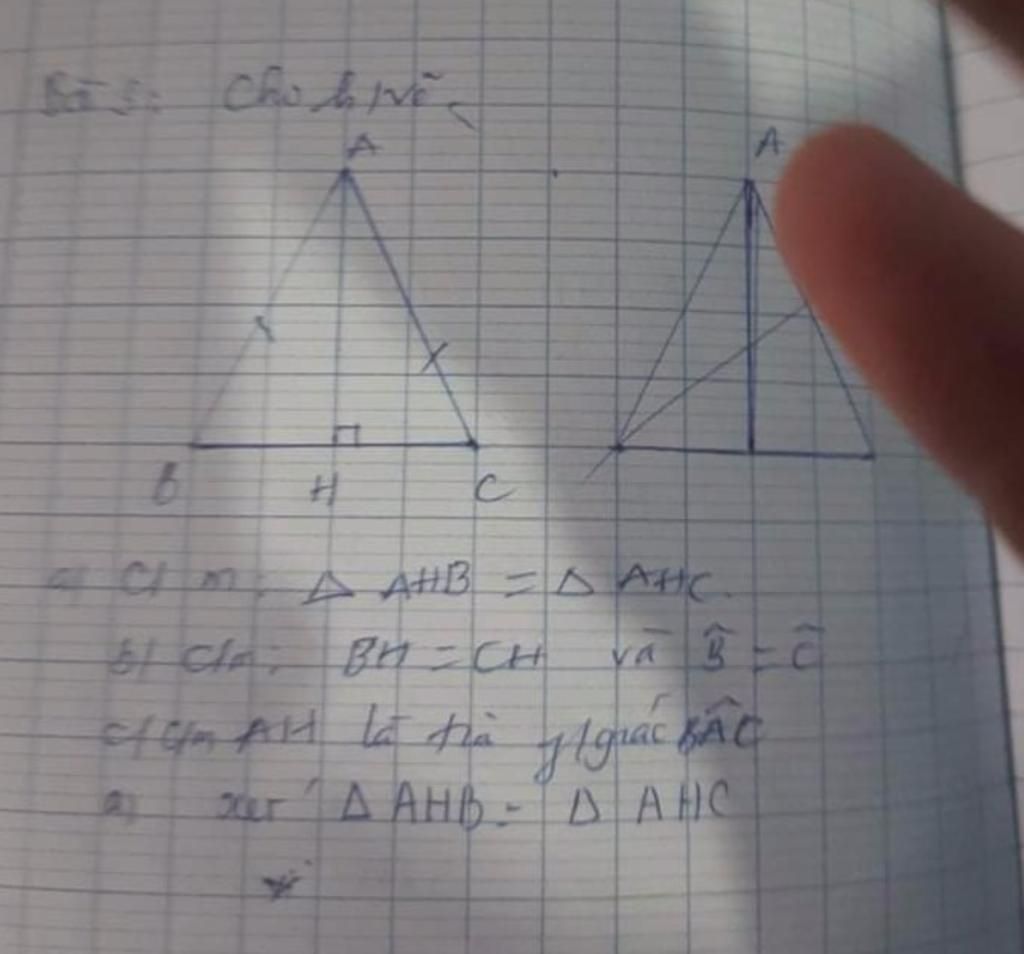 Bài 5: Cho h/vẽ
A
A
B H C
a) C/m: Δ AHB = Δ AHC.
b) C/m: BH = CH và B̂ = Ĉ
c) C/m AH là tia p/giác BÂC
a) xét Δ AHB = Δ AHC